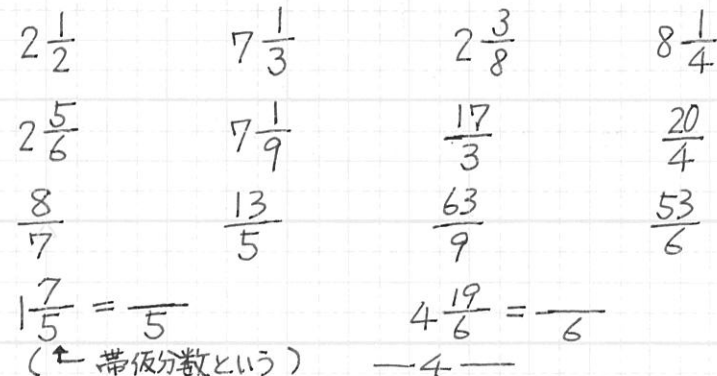 2 1/2 7 1/3 2 3/8 8 1/4
2 5/6 7 1/9 17/3 20/4
8/7 13/5 63/9 53/6
1 7/5 = /5 4 19/6 = /6
(↑ 帯仮分数という) —4—